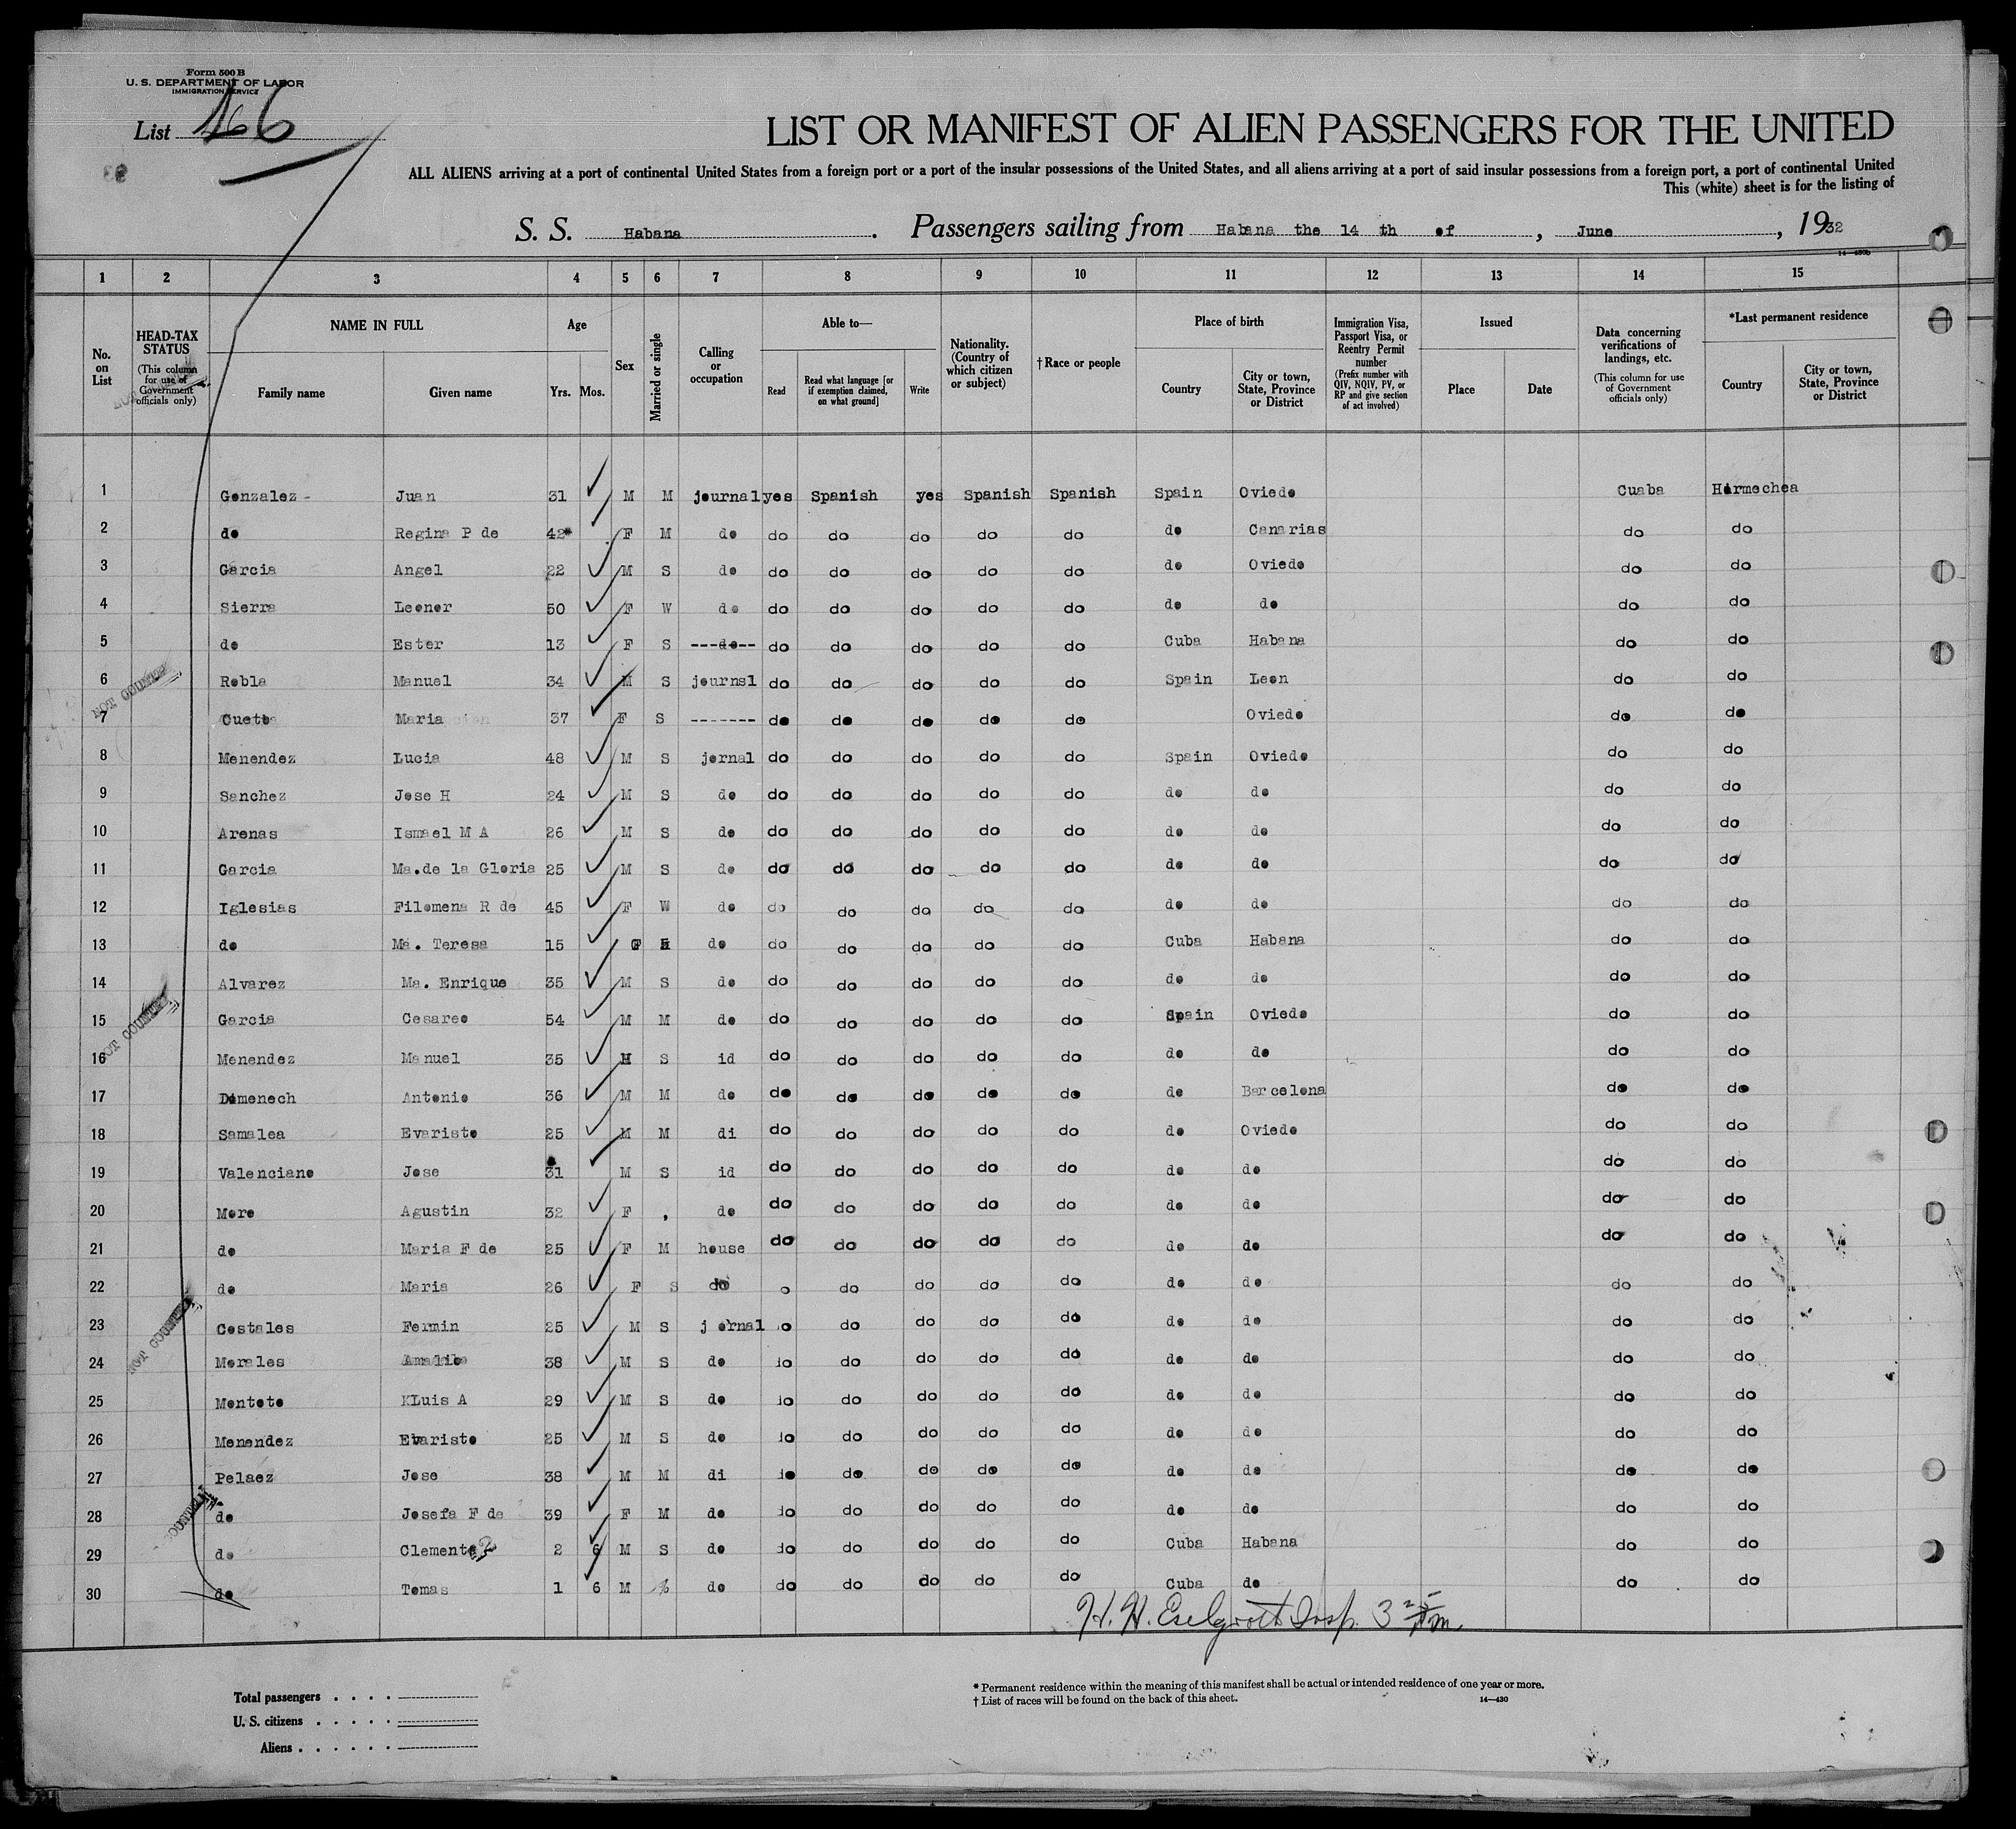 Form 500 B
U. S. DEPARTMENT OF LABOR
IMMIGRATION SERVICE
List 166
LIST OR MANIFEST OF ALIEN PASSENGERS FOR THE UNITED
ALL ALIENS arriving at a port of continental United States from a foreign port or a port of the insular possessions of the United States, and all aliens arriving at a port of said insular possessions from a foreign port, a port of continental United
This (white) sheet is for the listing of
S. S. Habana. Passengers sailing from Habana the 14 th of, June, 1932
14—430b
1 2 3 4 5 6 7 8 9 10 11 12 13 14 15
No. on List
HEAD-TAX STATUS (This column for use of Government officials only)
NAME IN FULL Family name Given name
Age Yrs. Mos.
Sex
Married or single
Calling or occupation
Able to— Read Read what language [or if exemption claimed, on what ground] Write
Nationality. (Country of which citizen or subject)
†Race or people
Place of birth Country City or town, State, Province or District
Immigration Visa, Passport Visa, or Reentry Permit number (Prefix number with QIV, NQIV, PV, or RP and give section of act involved)
Issued Place Date
Data concerning verifications of landings, etc. (This column for use of Government officials only)
*Last permanent residence Country City or town, State, Province or District
1 Gonzalez - Juan 31 M M journal yes Spanish yes Spanish Spanish Spain Oviedo Cuaba Hormechea
2 do Regina P de 42 F M do do do do do do do Canarias do do
3 Garcia Angel 22 M S do do do do do do do Oviedo do do
4 Sierra Leonor 50 F W do do do do do do do do do do
5 do Ester 13 F S ---do-- do do do do do Cuba Habana do do
6 Robla Manuel 34 M S journsl do do do do do Spain Leon do do
7 Cueto Maria 37 F S ------- do do do do do Oviedo do do
8 Menendez Lucia 48 M S jornal do do do do do Spain Oviedo do do
9 Sanchez Jose H 24 M S do do do do do do do do do do
10 Arenas Ismael M A 26 M S do do do do do do do do do do
11 Garcia Ma.de la Gloria 25 M S do do do do do do do do do do
12 Iglesias Filomena R de 45 F W do do do do do do do do do do
13 do Ma. Teresa 15 F do do do do do do Cuba Habana do do
14 Alvarez Ma. Enrique 35 M S do do do do do do do do do do
15 Garcia Cesareo 54 M M do do do do do do Spain Oviedo do do
16 Menendez Manuel 35 M S id do do do do do do do do do
17 Domenech Antonio 36 M M do do do do do do do Barcelona do do
18 Samalea Evaristo 25 M M di do do do do do do Oviedo do do
19 Valenciano Jose 31 M S id do do do do do do do do do
20 More Agustin 32 F , do do do do do do do do do do
21 do Maria F de 25 F M house do do do do do do do do do
22 do Maria 26 F S do o do do do do do do do do
23 Costales Fermin 25 M S jornal o do do do do do do do do
24 Morales 38 M S do do do do do do do do do do
25 Montoto KLuis A 29 M S do do do do do do do do do do
26 Menendez Evaristo 25 M S do do do do do do do do do do
27 Pelaez Jose 38 M M di do do do do do do do do do
28 do Josefa F de 39 F M do do do do do do do do do do
29 do Clemente 2 6 M S do do do do do do Cuba Habana do do
30 do Tomas 1 6 M do do do do do do Cuba do do do
NOT COUNTED
NOT COUNTED
NOT COUNTED
COUNTED
H. H. Insp. 3
Total passengers
U. S. citizens
Aliens
* Permanent residence within the meaning of this manifest shall be actual or intended residence of one year or more.
† List of races will be found on the back of this sheet.
14—430